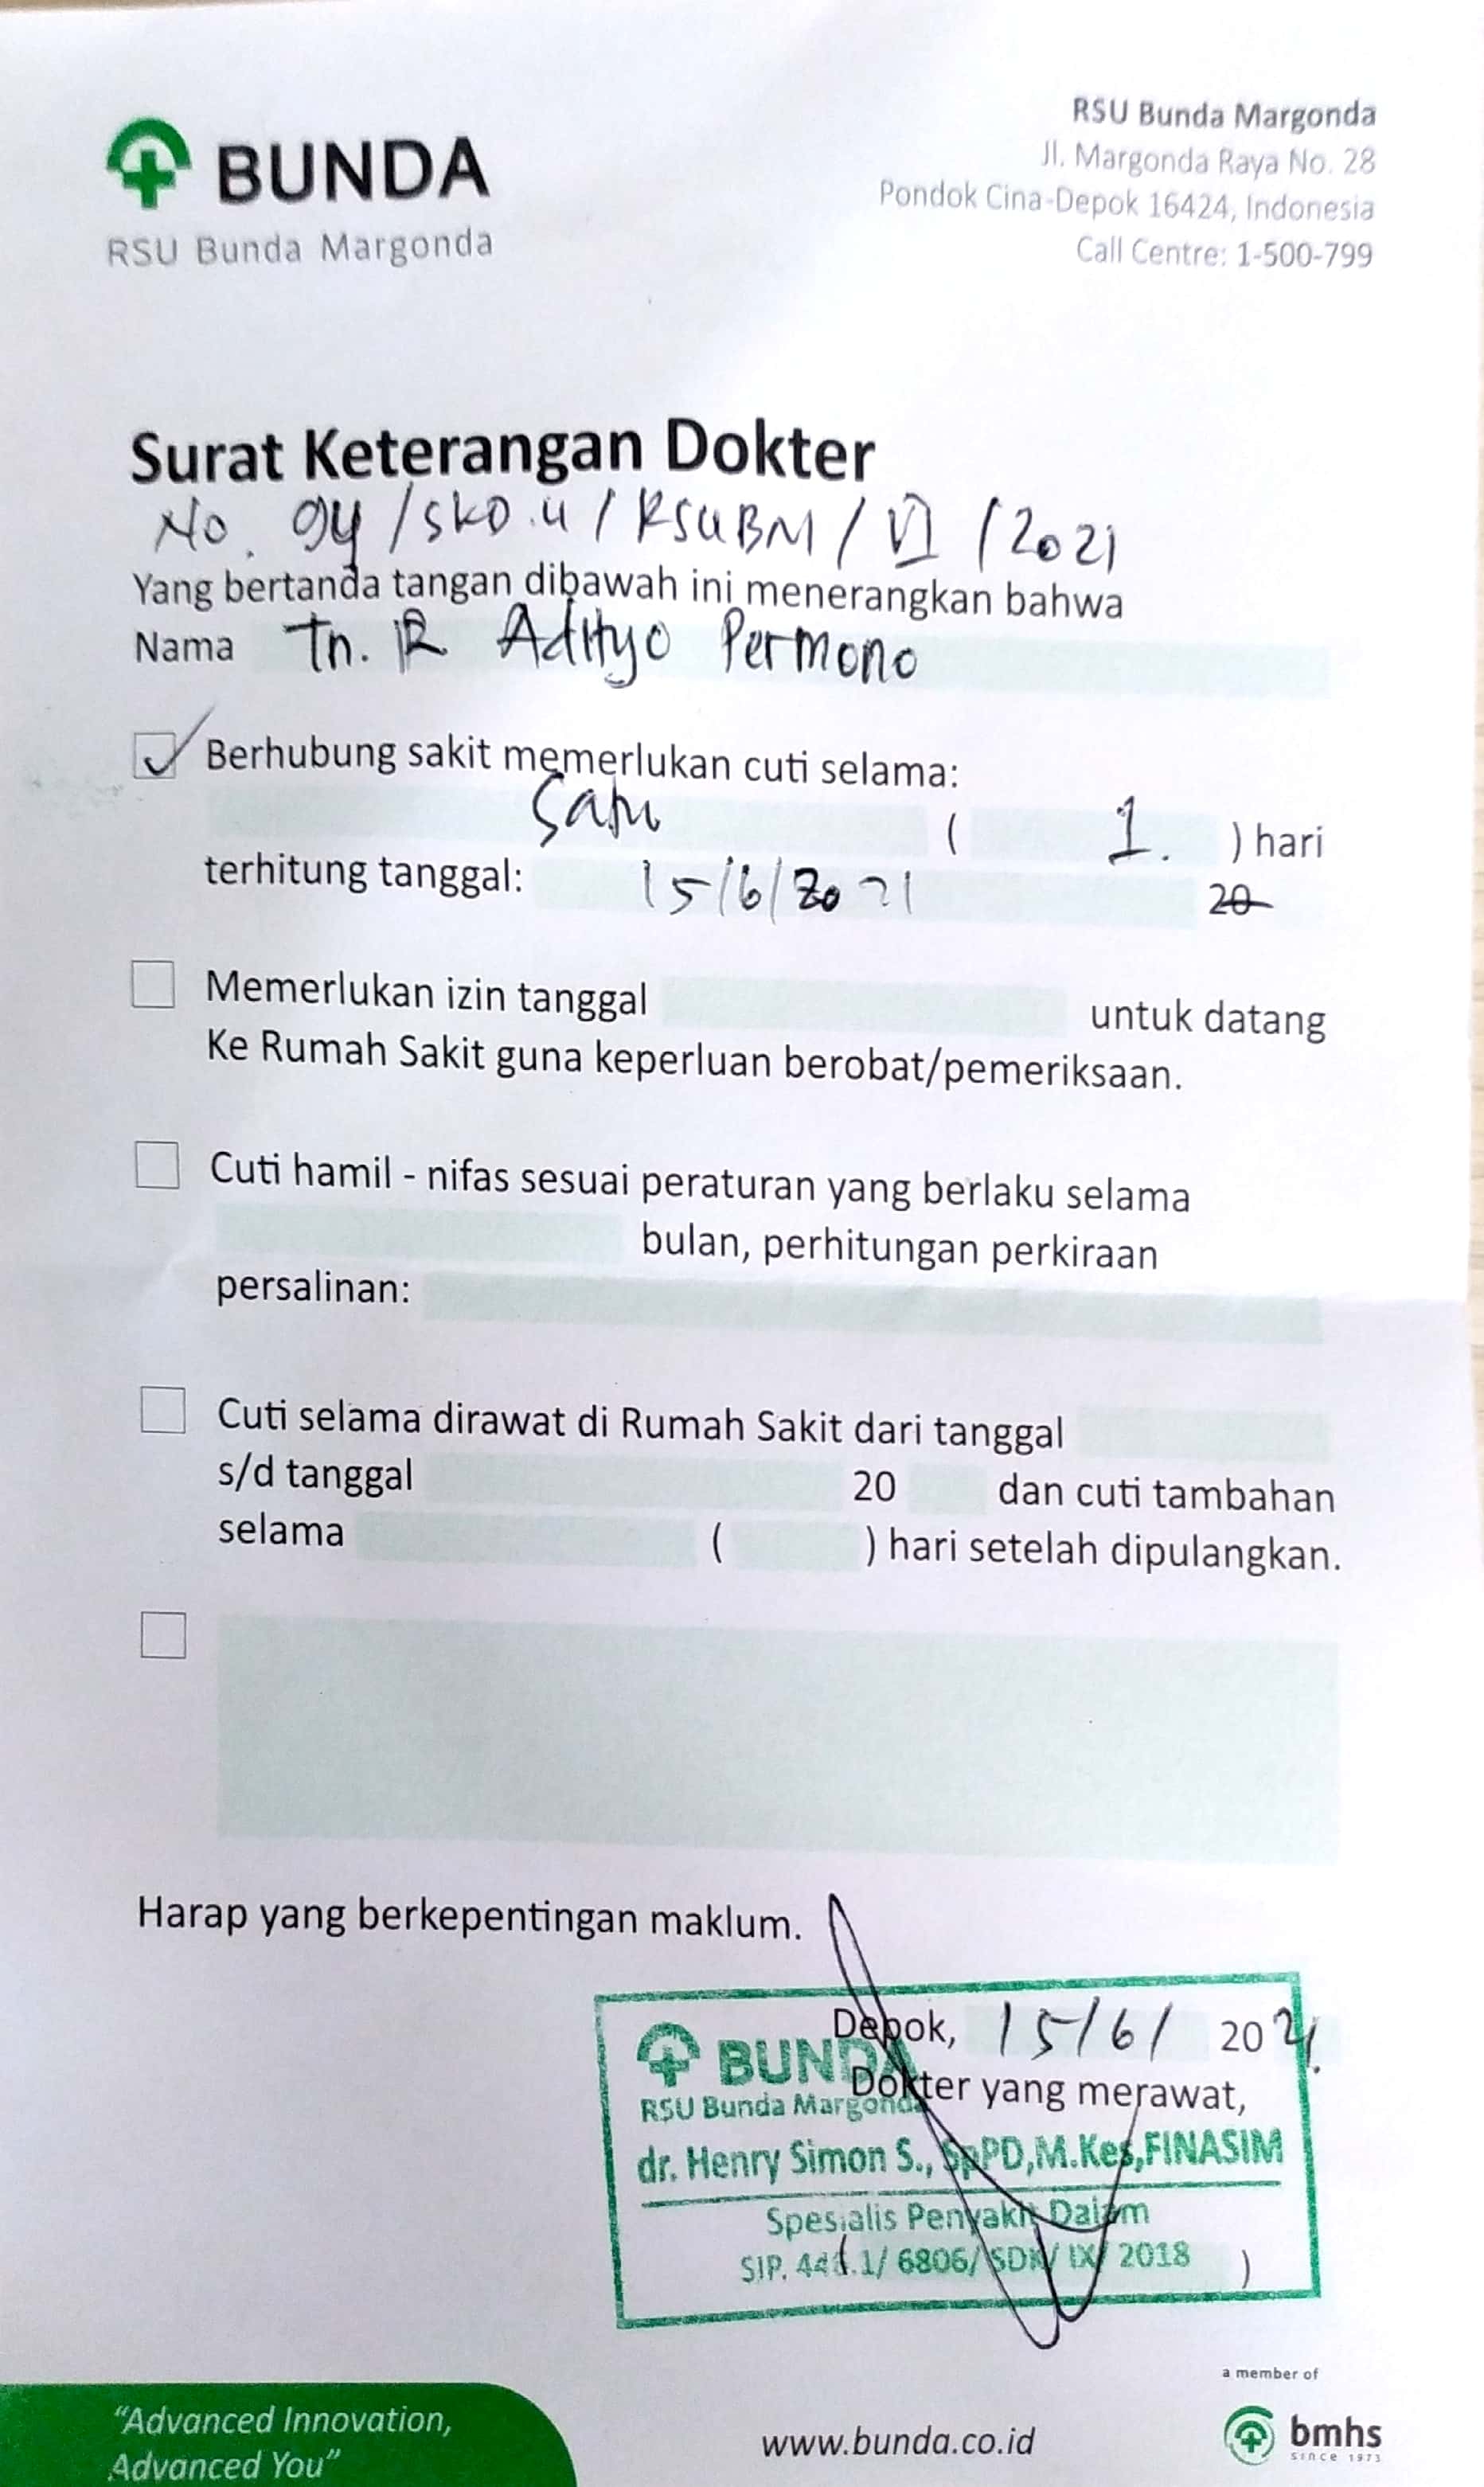 BUNDA
RSU Bunda Margonda
RSU Bunda Margonda
Jl. Margonda Raya No. 28
Pondok Cina-Depok 16424, Indonesia
Call Centre: 1-500-799
Surat Keterangan Dokter
No. 94 /SKD.U / RSUBM / VI / 2021
Yang bertanda tangan dibawah ini menerangkan bahwa
Nama Tn. R Adityo Permono
Berhubung sakit memerlukan cuti selama:
Satu ( 1. ) hari
terhitung tanggal: 15/6/2021 20
Memerlukan izin tanggal untuk datang
Ke Rumah Sakit guna keperluan berobat/pemeriksaan.
Cuti hamil - nifas sesuai peraturan yang berlaku selama
bulan, perhitungan perkiraan
persalinan:
Cuti selama dirawat di Rumah Sakit dari tanggal
s/d tanggal 20 dan cuti tambahan
selama ( ) hari setelah dipulangkan.
Harap yang berkepentingan maklum.
Depok, 15/6/ 2021.
BUNDA
Dokter yang merawat,
RSU Bunda Margonda
dr. Henry Simon S., SpPD,M.Kes,FINASIM
Spesialis Penyakit Dalam
SIP. .1/ 6806/ SDK/ IX/ 2018 )
a member of
"Advanced Innovation,
Advanced You"
www.bunda.co.id
bmhs
SINCE 1973